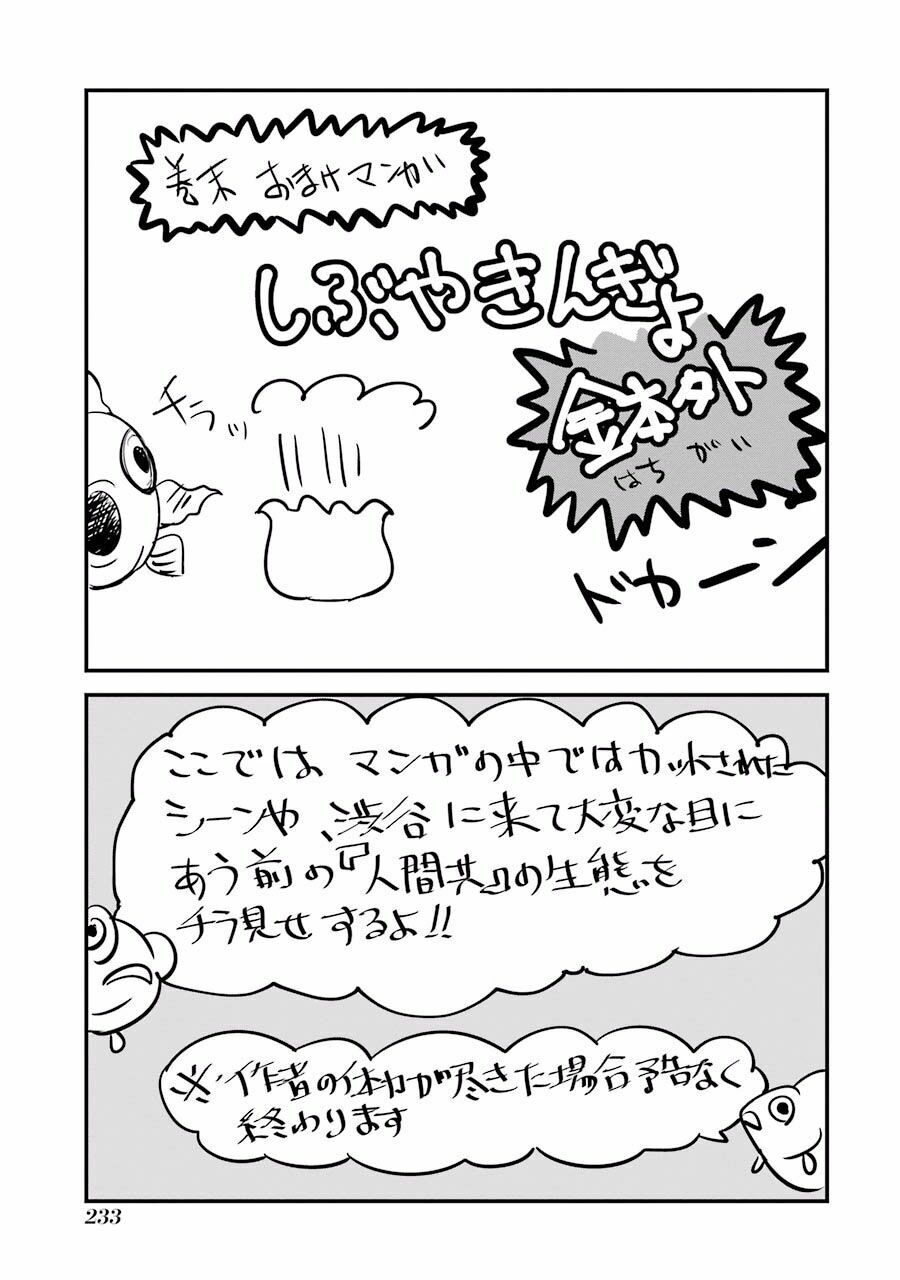 巻末 おまけマンガ
しぶやきんぎょ
金本外
はちがい
チラッ
ドカーン
ここでは マンガの中ではカットされた
シーンや、渋谷に来て大変な目に
あう前の『人間共』の生態を
チラ見せするよ!!
※作者の体力が尽きた場合予告なく
終わります
233